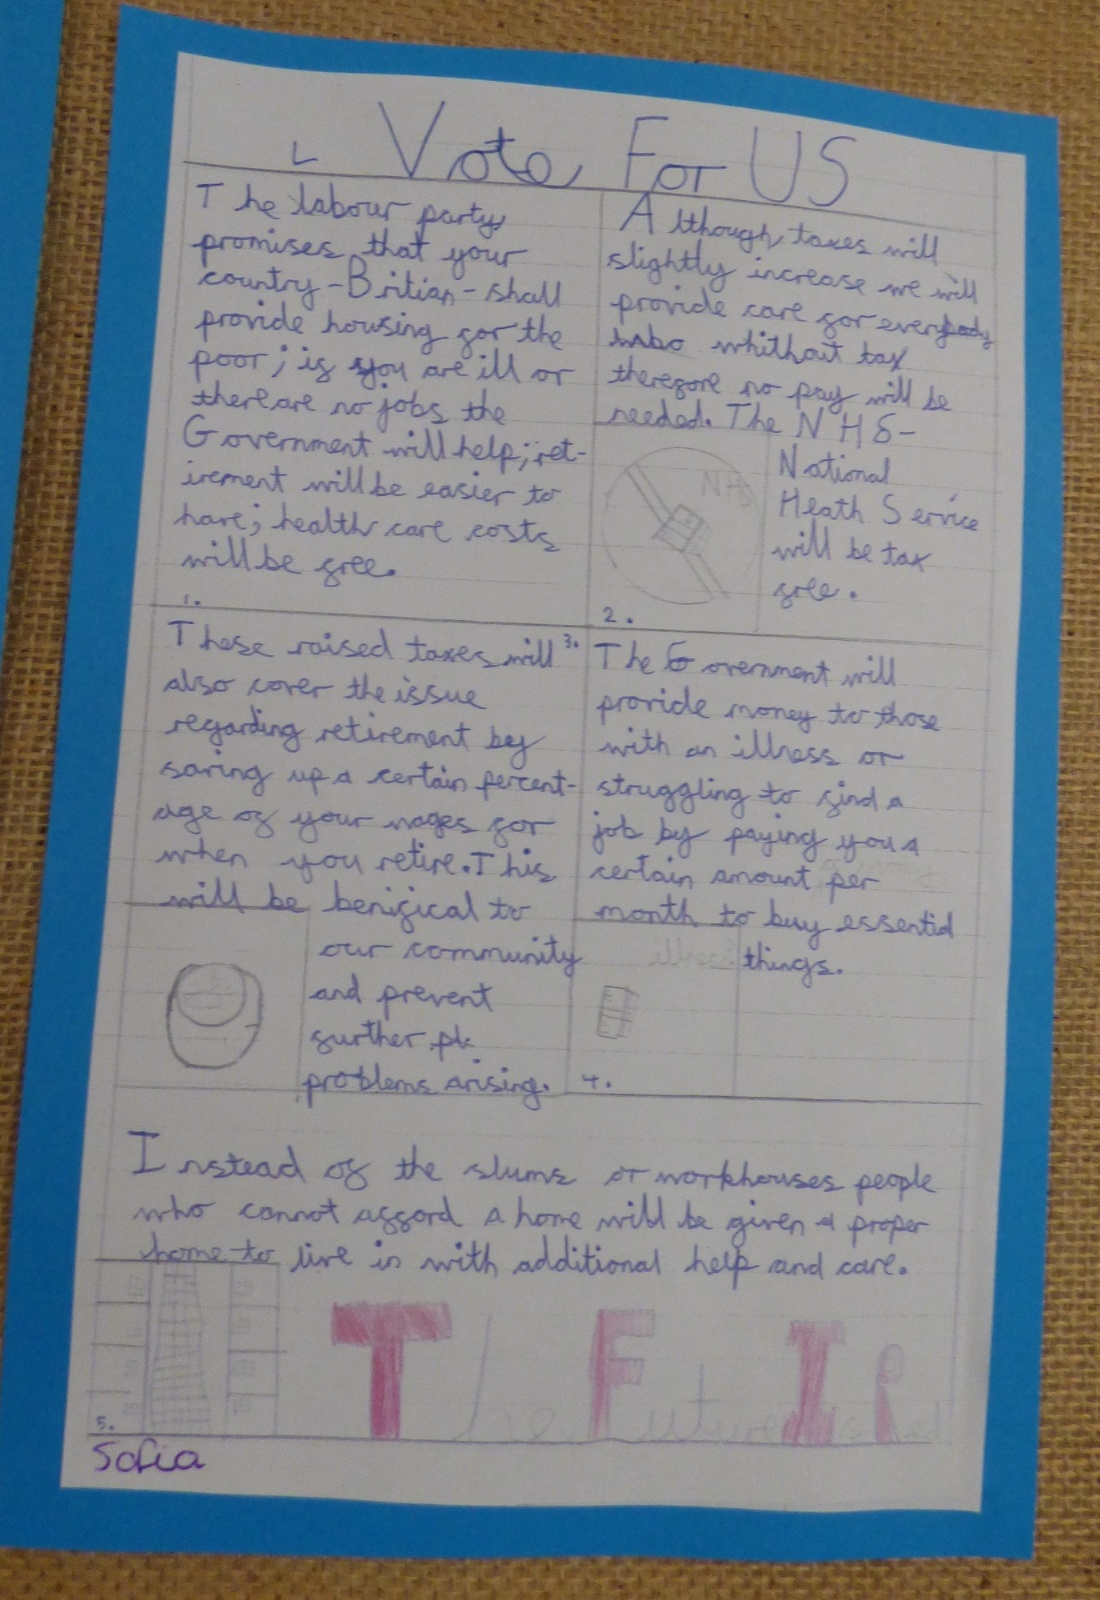 Vote For US
The labour party
promises that your
country - Britian - shall
provide housing for the
poor; if you are ill or
there are no jobs the
Government will help; ret-
irement will be easier to
have; health care costs
will be free.
1.
Although, taxes will
slightly increase we will
provide care for everybody
whithout tax
therefore no pay will be
needed. The NHS-
National
Heath Service
will be tax
free.
NHS
2.
These raised taxes will
also cover the issue
regarding retirement by
saving up a certain percent-
age of your wages for
when you retire. This
will be benifical to
our community
and prevent
further
problems arising.
3.
The Government will
provide money to those
with an illness or
struggling to find a
job by paying you a
certain amount per
month to buy essential
things.
4.
Instead of the slums or workhouses people
who cannot afford a home will be given a proper
home to live in with additional help and care.
5.
The Future Is Red
Sofia